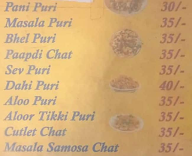 Pani Puri 30/-
Masala Puri 35/-
Bhel Puri 35/-
Paapdi Chat 35/-
Sev Puri 35/-
Dahi Puri 40/-
Aloo Puri 35/-
Aloor Tikki Puri 35/-
Cutlet Chat 35/-
Masala Samosa Chat 35/-